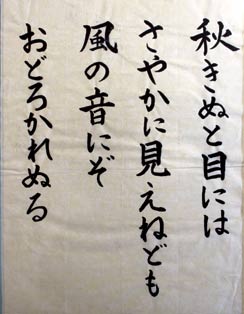 秋きぬと目には
さやかに見えねども
風の音にぞ
おどろかれぬる